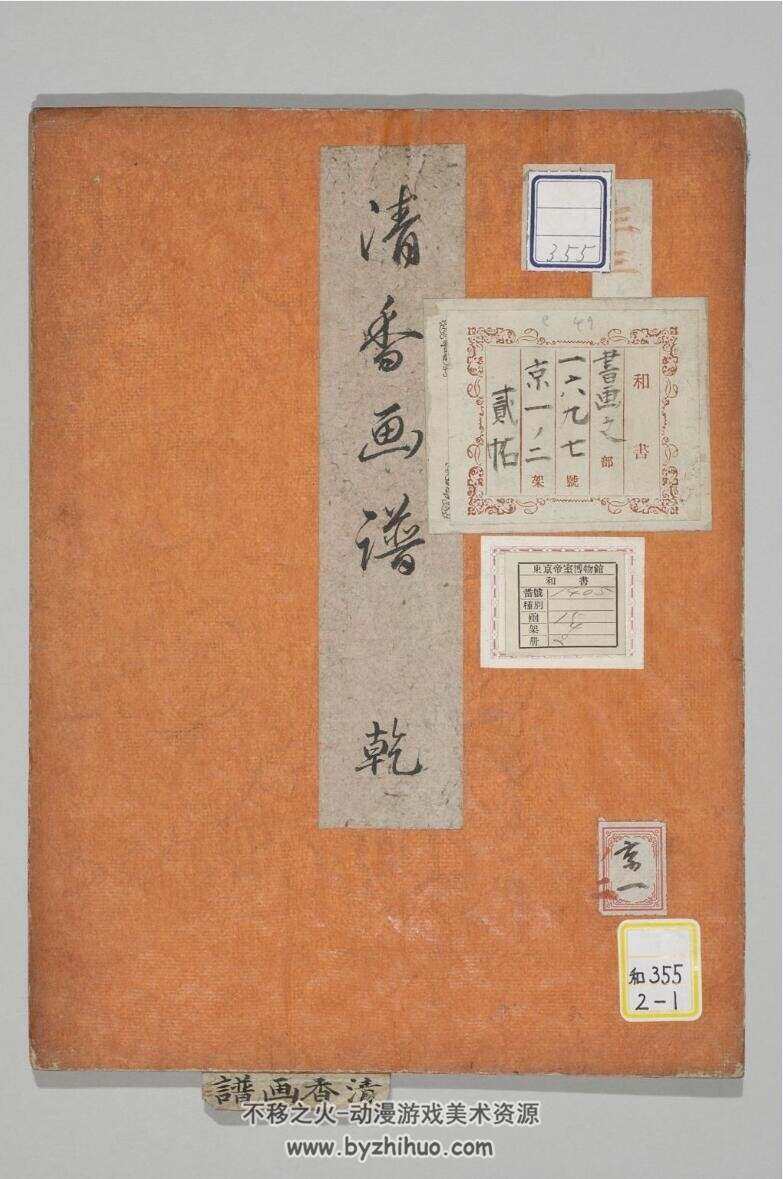 清香画譜 乾
355
三三
49
和書
書画之部
一六九七號
京一ノ二架
貳帖
東京帝室博物館
和書
番號 1405
種別
函 15
架 4
册 2
京一
二
和355
2-1
清香画譜
不移之火-动漫游戏美术资源
www.byzhihuo.com